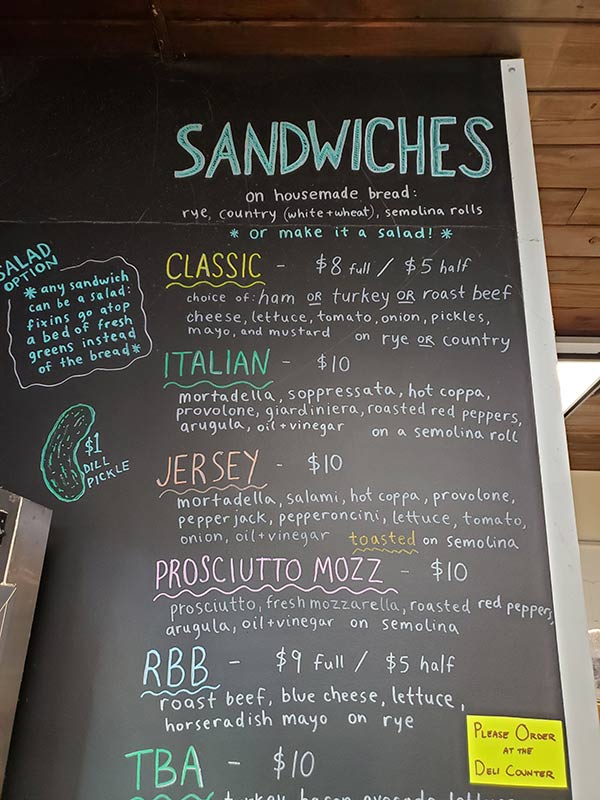 SANDWICHES
on housemade bread:
rye, country (white+wheat), semolina rolls
* or make it a salad! *
SALAD
OPTION
* any sandwich
can be a salad:
fixins go atop
a bed of fresh
greens instead
of the bread *
$1
DILL
PICKLE
CLASSIC - $8 full / $5 half
choice of: ham OR turkey OR roast beef
cheese, lettuce, tomato, onion, pickles,
mayo, and mustard on rye OR country
ITALIAN - $10
mortadella, soppressata, hot coppa,
provolone, giardiniera, roasted red peppers,
arugula, oil+vinegar on a semolina roll
JERSEY - $10
mortadella, salami, hot coppa, provolone,
pepper jack, pepperoncini, lettuce, tomato,
onion, oil+vinegar toasted on semolina
PROSCIUTTO MOZZ - $10
prosciutto, fresh mozzarella, roasted red peppers,
arugula, oil+vinegar on semolina
RBB - $9 full / $5 half
roast beef, blue cheese, lettuce,
horseradish mayo on rye
TBA - $10
turkey, bacon, avocado, lettuce
PLEASE ORDER
AT THE
DELI COUNTER